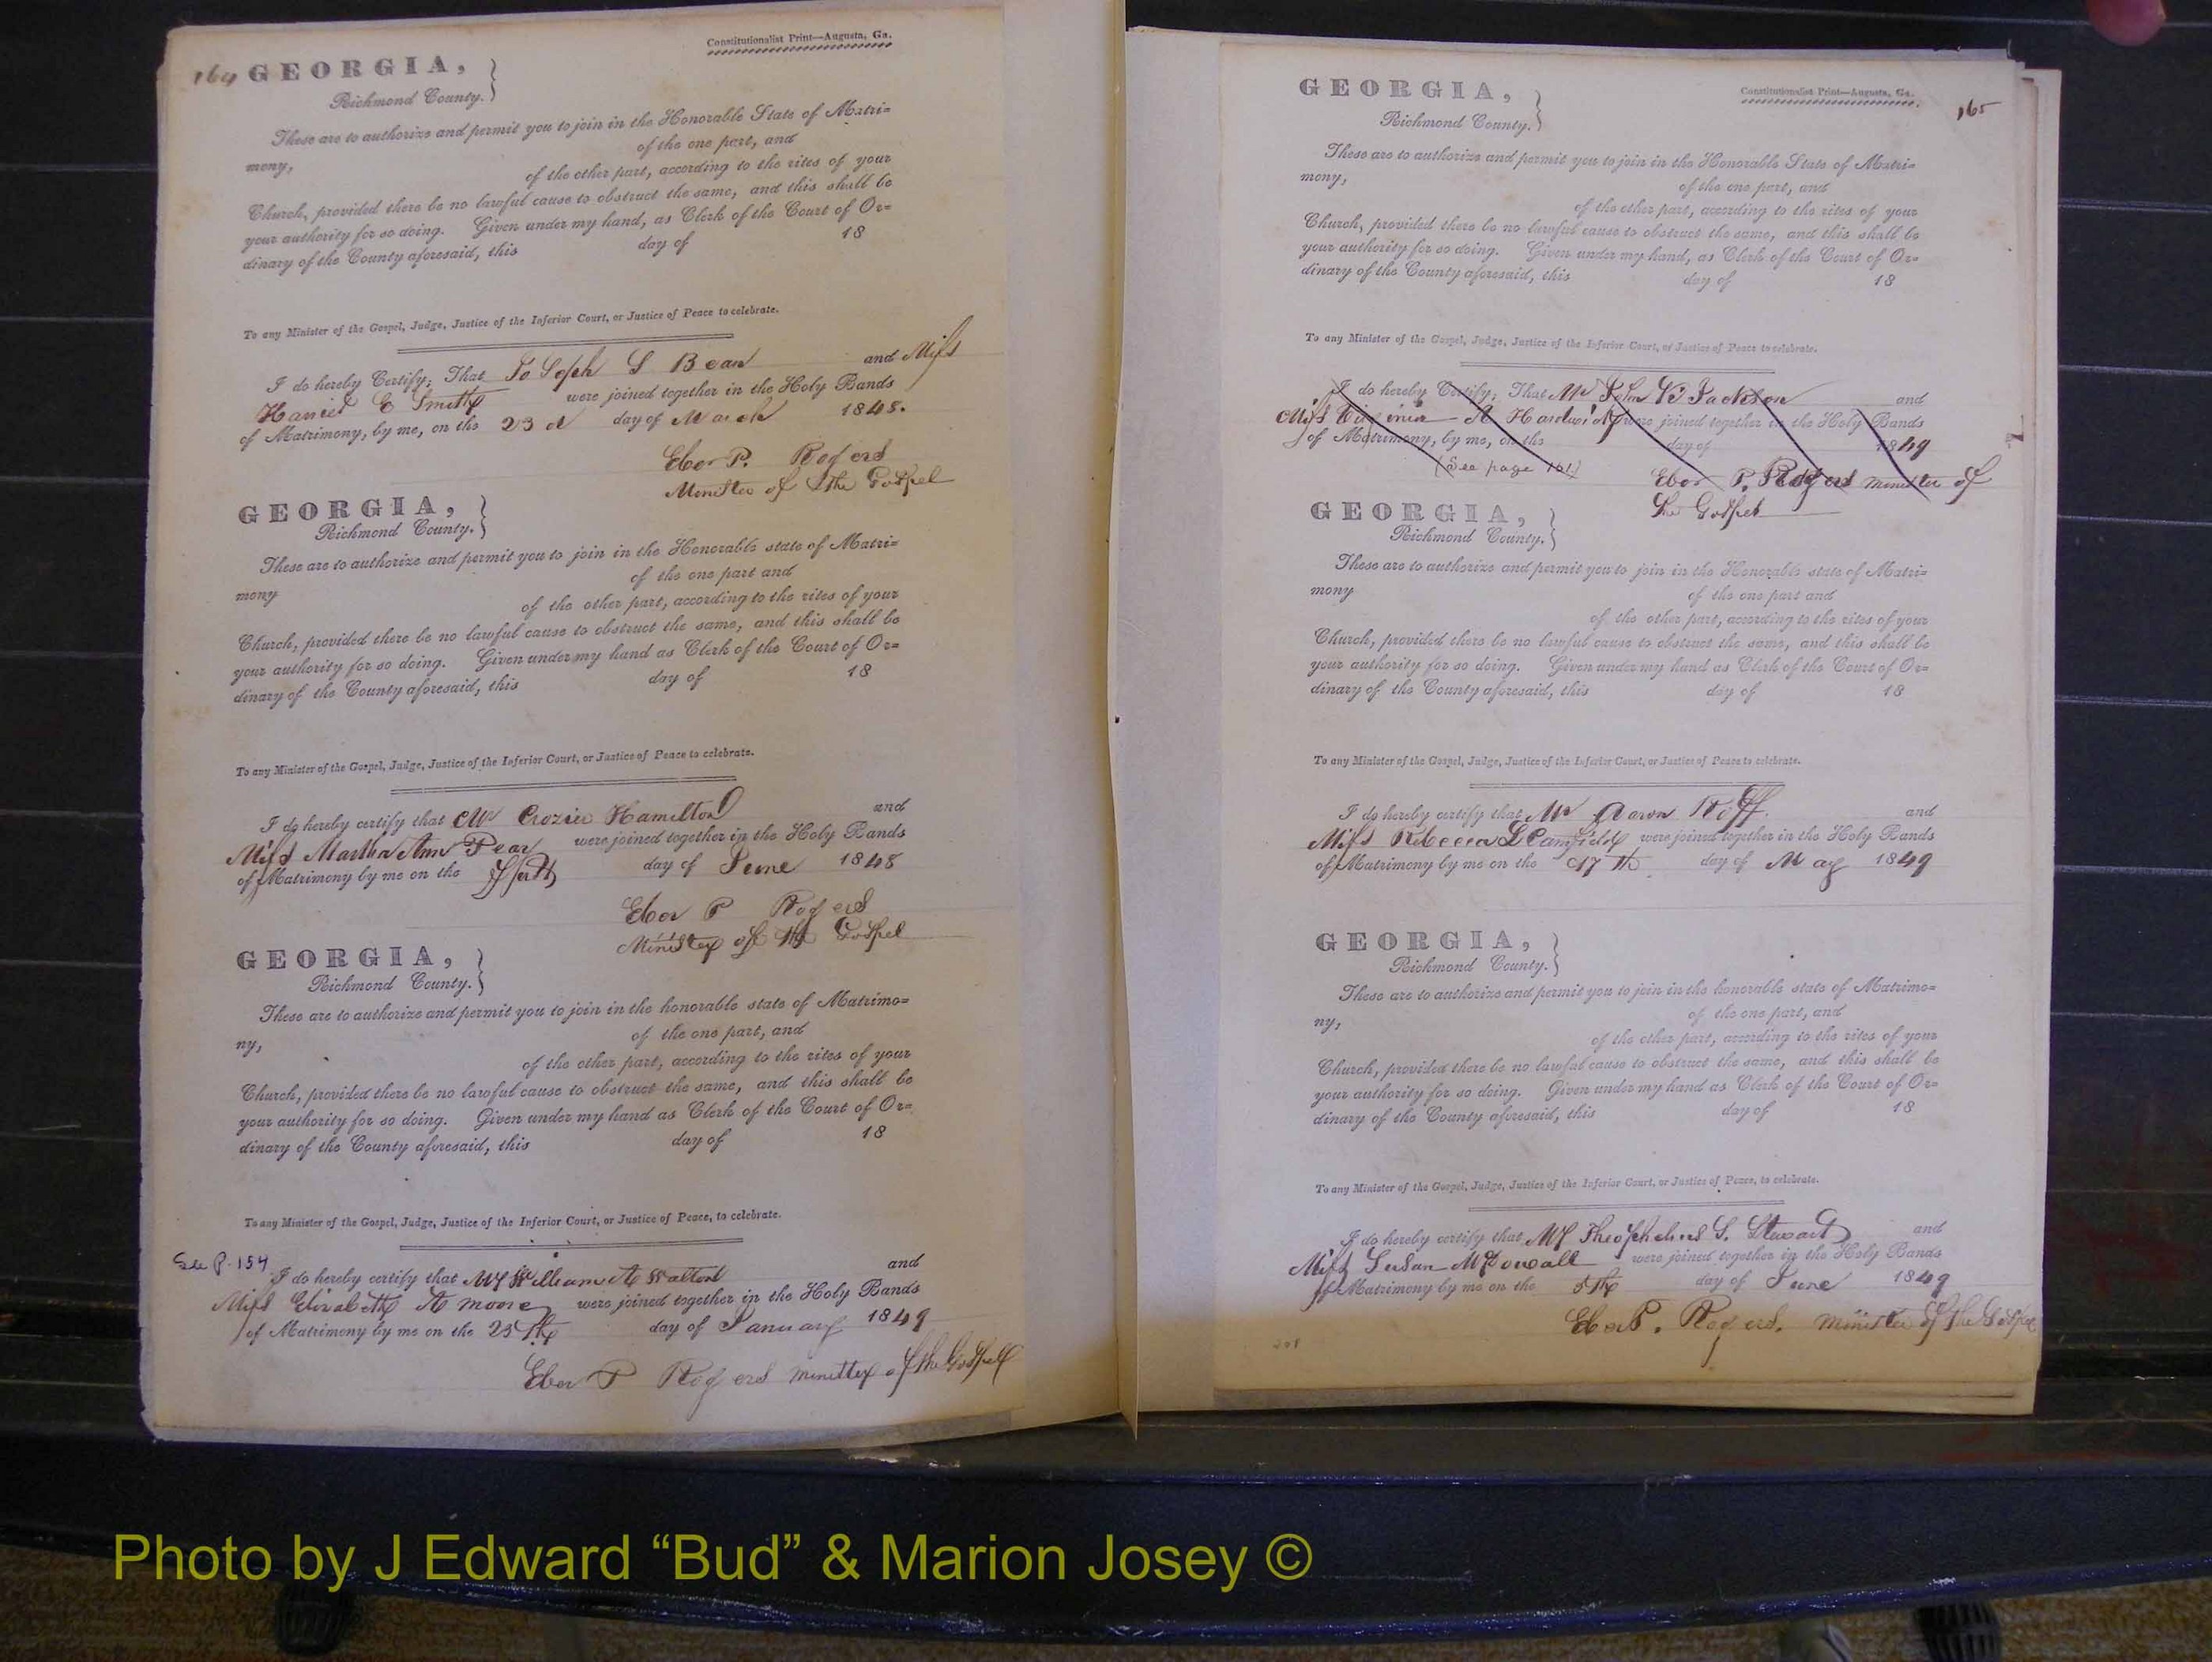 Constitutionalist Print—Augusta, Ga.
164 GEORGIA,
Richmond County.
These are to authorize and permit you to join in the Honorable State of Matri=
mony, of the one part, and
of the other part, according to the rites of your
Church, provided there be no lawful cause to obstruct the same, and this shall be
your authority for so doing. Given under my hand, as Clerk of the Court of Or=
dinary of the County aforesaid, this day of 18
To any Minister of the Gospel, Judge, Justice of the Inferior Court, or Justice of Peace to celebrate.
I do hereby Certify; That Joseph S Bean and Miss
Harriet E Smith were joined together in the Holy Bands
of Matrimony, by me, on the 23d day of March 1848.
Eber P. Rogers
Minister of the Gospel
GEORGIA,
Richmond County.
These are to authorize and permit you to join in the Honorable state of Matri=
mony of the one part and
of the other part, according to the rites of your
Church, provided there be no lawful cause to obstruct the same, and this shall be
your authority for so doing. Given under my hand as Clerk of the Court of Or=
dinary of the County aforesaid, this day of 18
To any Minister of the Gospel, Judge, Justice of the Inferior Court, or Justice of Peace to celebrate.
I do hereby certify that Mr Crozier Hamilton and
Miss Martha Ann Pear were joined together in the Holy Bands
of Matrimony by me on the day of June 1848
Eber P Rogers
Minister of the Gospel
GEORGIA,
Richmond County.
These are to authorize and permit you to join in the honorable state of Matrimo=
ny, of the one part, and
of the other part, according to the rites of your
Church, provided there be no lawful cause to obstruct the same, and this shall be
your authority for so doing. Given under my hand as Clerk of the Court of Or=
dinary of the County aforesaid, this day of 18
To any Minister of the Gospel, Judge, Justice of the Inferior Court, or Justice of Peace, to celebrate.
See P. 154
I do hereby certify that Mr William A Walton and
Miss Elizabeth A Moore were joined together in the Holy Bands
of Matrimony by me on the 25th day of January 1849
Eber P Rogers minister of the Gospel
Constitutionalist Print—Augusta, Ga.
165
GEORGIA,
Richmond County.
These are to authorize and permit you to join in the Honorable State of Matri=
mony, of the one part, and
of the other part, according to the rites of your
Church, provided there be no lawful cause to obstruct the same, and this shall be
your authority for so doing. Given under my hand, as Clerk of the Court of Or=
dinary of the County aforesaid, this day of 18
To any Minister of the Gospel, Judge, Justice of the Inferior Court, or Justice of Peace to celebrate.
I do hereby Certify; That Mr John B Jackson and
Miss Virginia A Hardwick were joined together in the Holy Bands
of Matrimony, by me, on the day of 1849
(See page 161)
Eber P. Rogers minister of
the Gospel
GEORGIA,
Richmond County.
These are to authorize and permit you to join in the Honorable state of Matri=
mony of the one part and
of the other part, according to the rites of your
Church, provided there be no lawful cause to obstruct the same, and this shall be
your authority for so doing. Given under my hand as Clerk of the Court of Or=
dinary of the County aforesaid, this day of 18
To any Minister of the Gospel, Judge, Justice of the Inferior Court, or Justice of Peace to celebrate.
I do hereby certify that Mr Aaron Roff. and
Miss Rebecca L Camfield were joined together in the Holy Bands
of Matrimony by me on the 17th day of May 1849
GEORGIA,
Richmond County.
These are to authorize and permit you to join in the honorable state of Matrimo=
ny, of the one part, and
of the other part, according to the rites of your
Church, provided there be no lawful cause to obstruct the same, and this shall be
your authority for so doing. Given under my hand as Clerk of the Court of Or=
dinary of the County aforesaid, this day of 18
To any Minister of the Gospel, Judge, Justice of the Inferior Court, or Justice of Peace, to celebrate.
I do hereby certify that Mr Theophelius S. Stewart and
Miss Susan McDowall were joined together in the Holy Bands
of Matrimony by me on the 5th day of June 1849
Eber P. Rogers. minister of the Gospel
Photo by J Edward “Bud” & Marion Josey ©